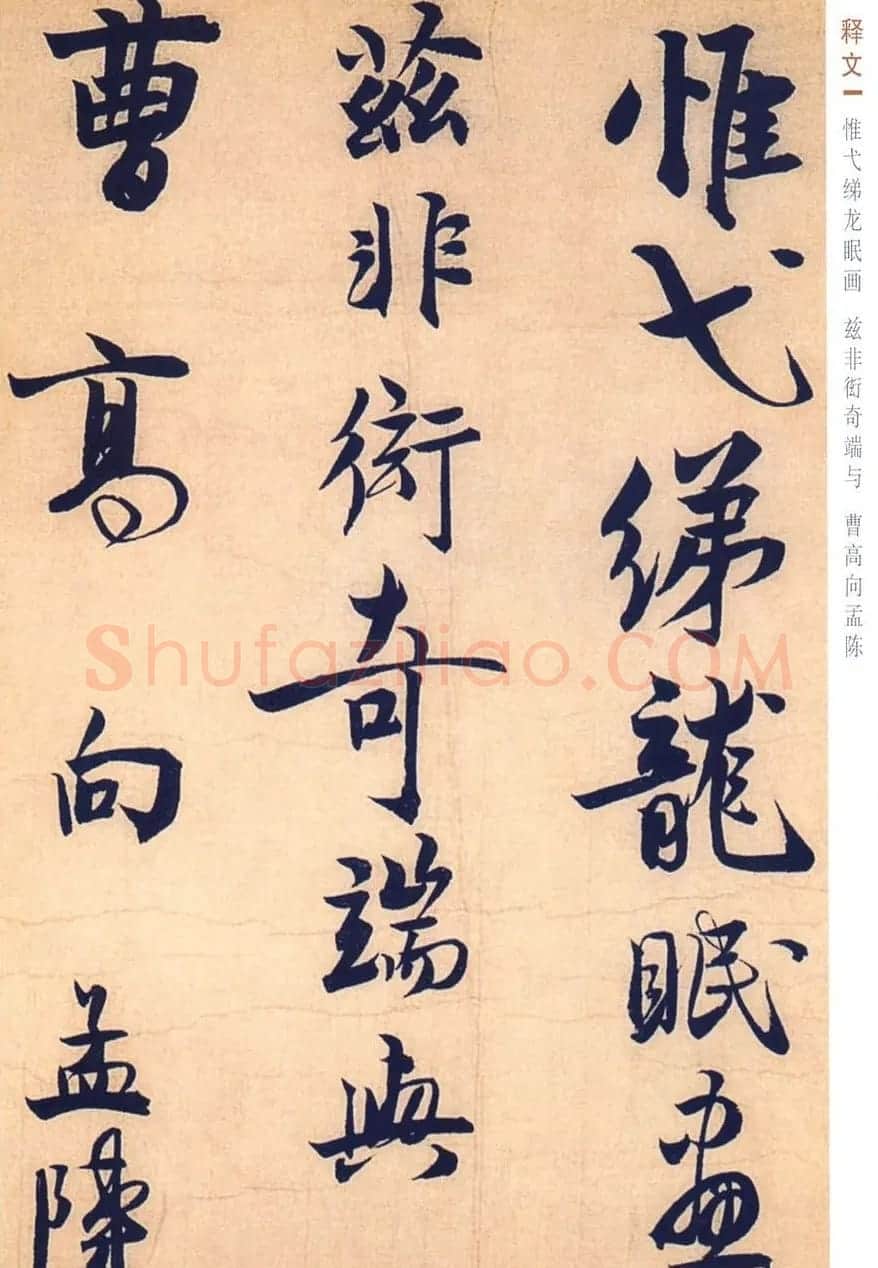 释文
惟弋绨龙眠画 兹非衒奇端与 曹高向孟陈
惟弋綈龍眠畫
茲非衒奇端與
曹高向孟陳
Shufaziliao.COM